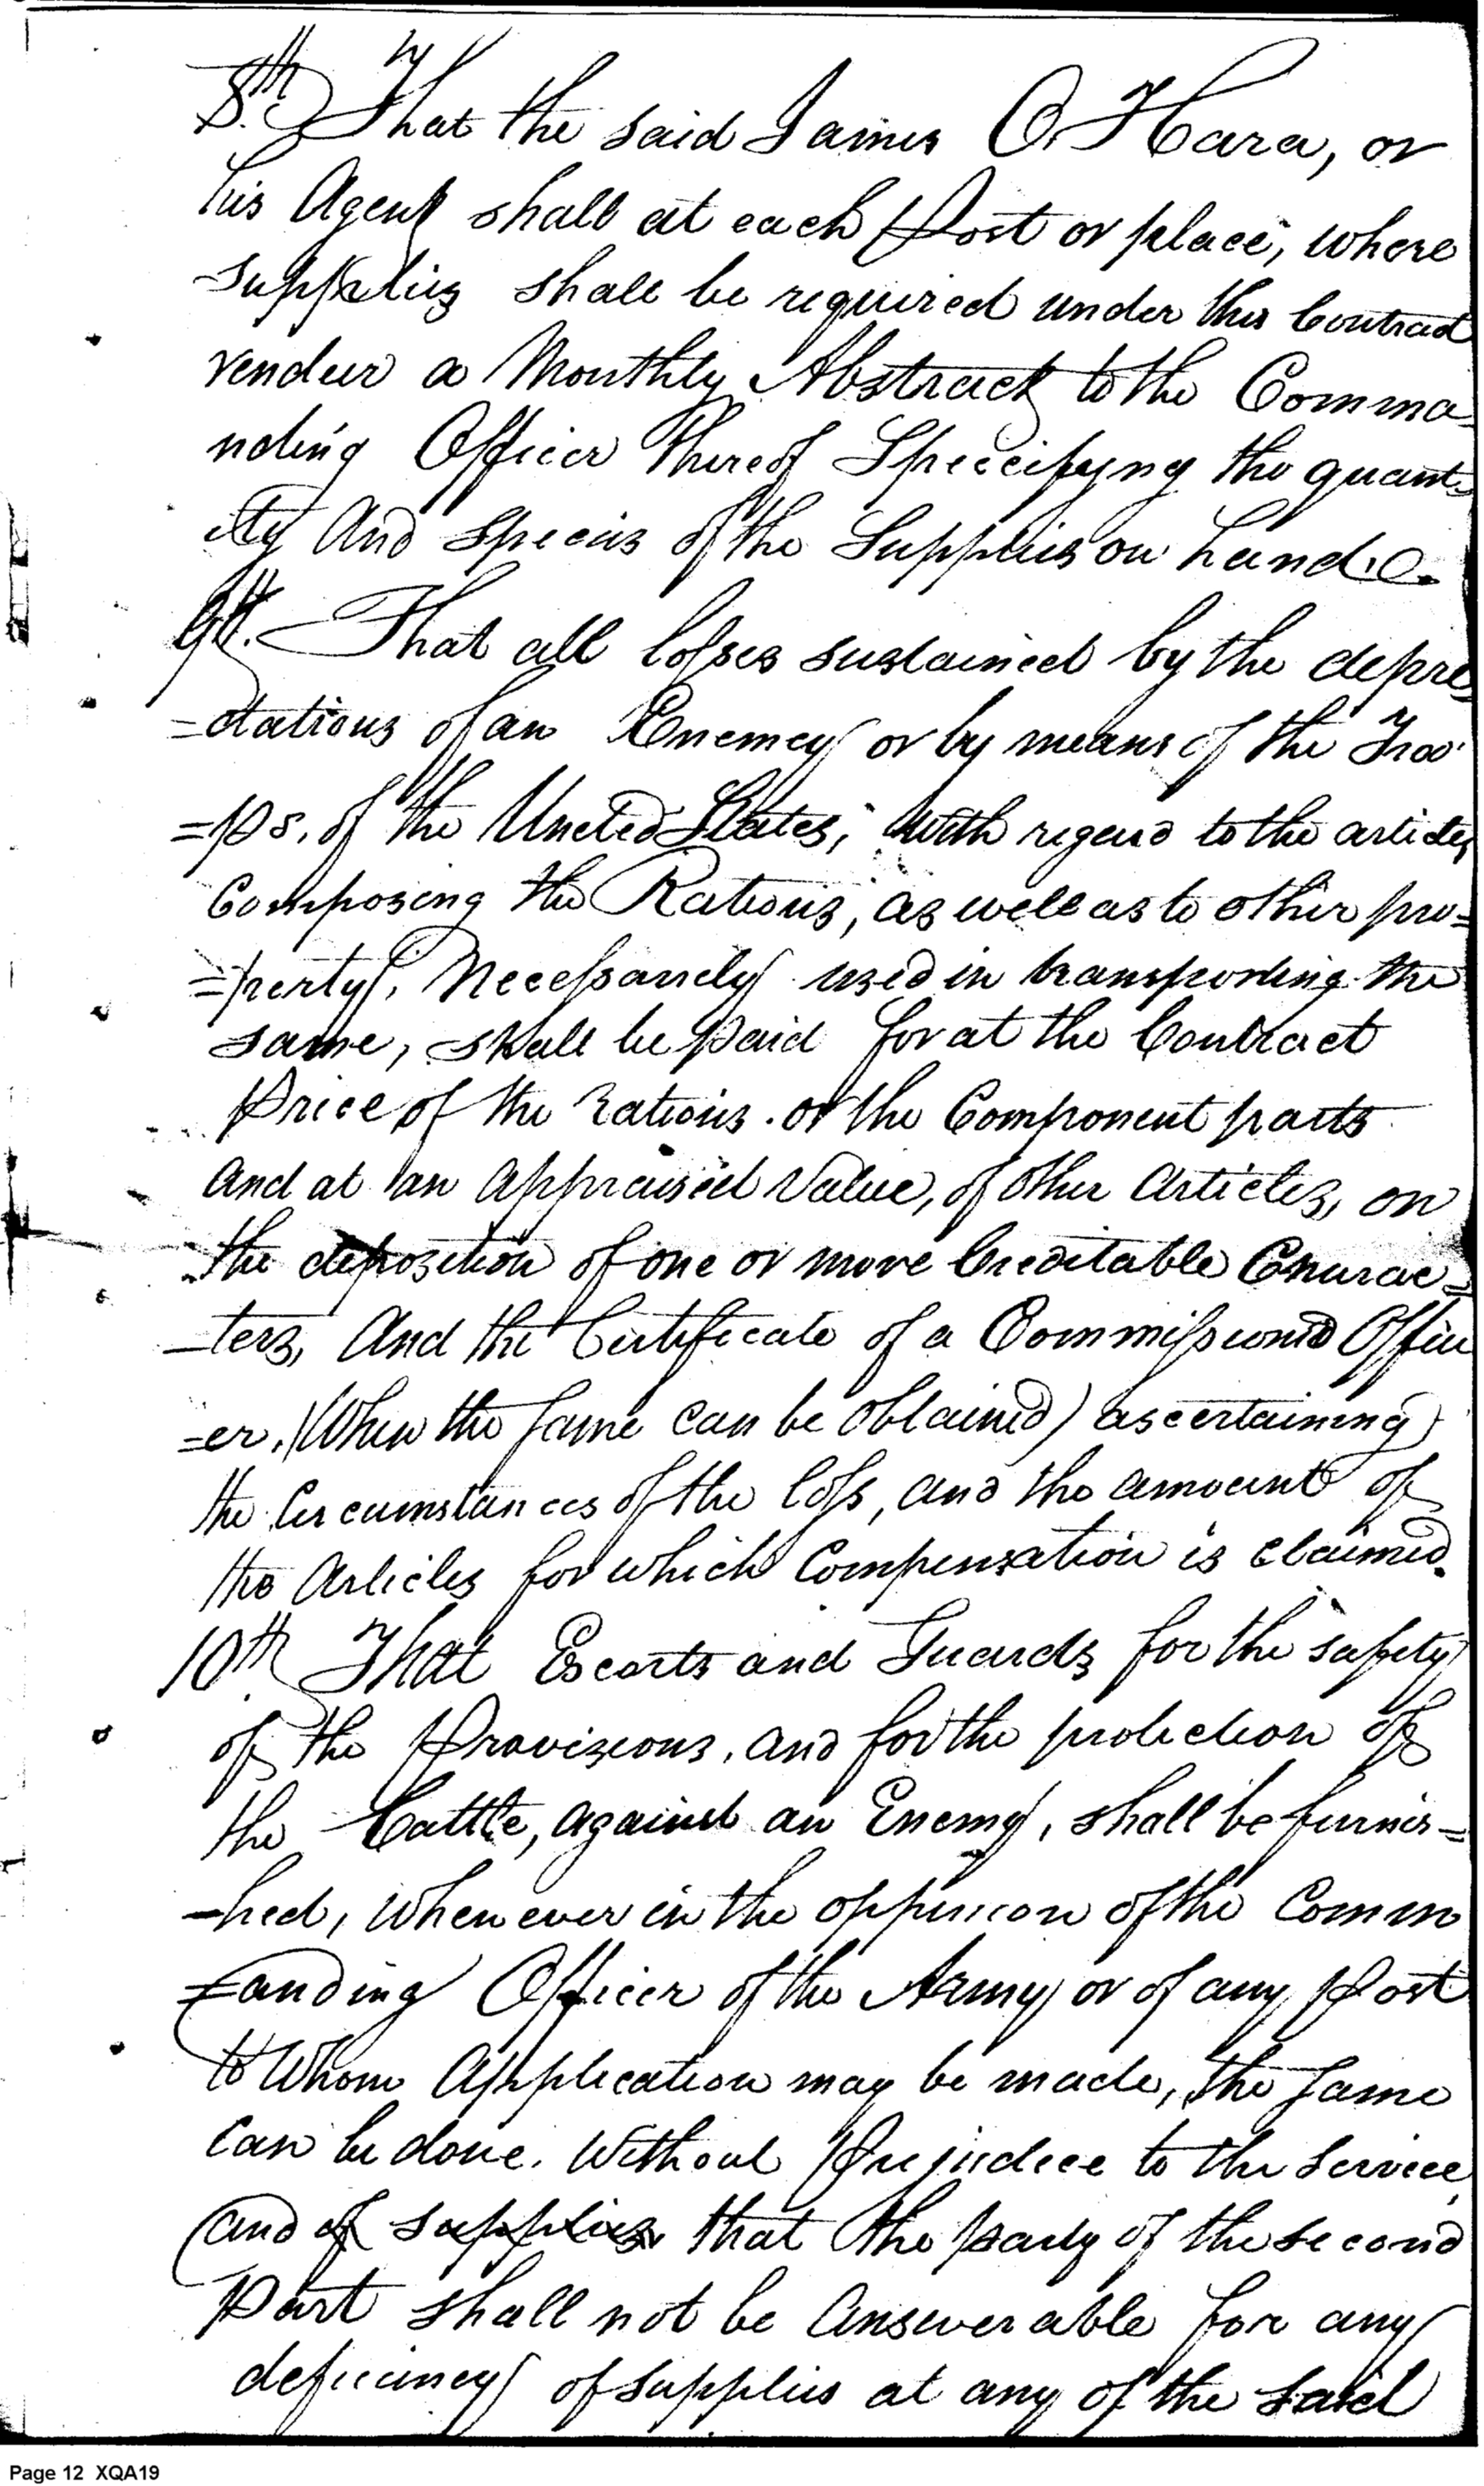 8th. That the said James O. Hara, or
his Agent shall at each Post or place, where
supplies shall be required under this Contract
render a Monthly Abstract to the Comma
nding Officer thereof Specifying the quant=
ity And Species of the Supplies on hand.
9th. That all losses sustained by the depre=
=dations of an Enemey or by means of the Troo
=ps. of the United States, with regard to the articles
Composing the Rations, as well as to other pro=
=perty, Necessarily used in transporting the
same, shall be paid for at the Contract
Price of the rations. or the Component parts
And at an Appraised Value, of other Articles, on
the deposition of one or more Creditable Charac=
=ters, And the Certificate of a Commissioned Offic
=er, (When the same can be obtained) ascertaining
the Circumstances of the loss, and the amount of
the Articles for which Compensation is claimed.
10th. That Escorts and Guards for the safety
of the Provisions, and for the protection of
the Cattle, against an Enemy, shall be furnis=
=hed, when ever in the oppinion of the Comm
=anding Officer of the Army or of any Post
to Whom Application may be made, the same
can be done. Without Prejudice to the service
and of supplies that the party of the second
Part shall not be answerable for any
deficiency of supplies at any of the said
Page 12 XQA19